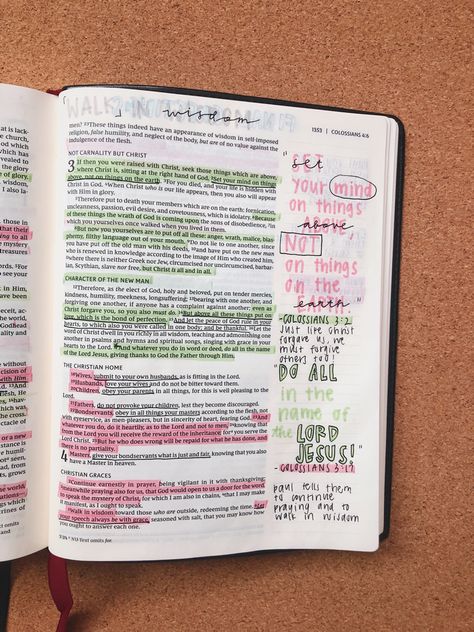 of glory.
mystery
treasures
accept,
a new
WALK in wisdom
1353 | COLOSSIANS 4:6
men? 23These things indeed have an appearance of wisdom in self-imposed
religion, false humility, and neglect of the body, but are of no value against the
indulgence of the flesh.
NOT CARNALITY BUT CHRIST
3 If then you were raised with Christ, seek those things which are above,
where Christ is, sitting at the right hand of God. 2Set your mind on things
above, not on things on the earth. 3For you died, and your life is hidden with
Christ in God. 4When Christ who is our life appears, then you also will appear
with Him in glory.
5Therefore put to death your members which are on the earth: fornication,
uncleanness, passion, evil desire, and covetousness, which is idolatry. 6Because
of these things the wrath of God is coming upon the sons of disobedience, 7in
which you yourselves once walked when you lived in them.
8But now you yourselves are to put off all these: anger, wrath, malice, blas-
phemy, filthy language out of your mouth. 9Do not lie to one another, since
you have put off the old man with his deeds, 10and have put on the new man
who is renewed in knowledge according to the image of Him who created him,
11where there is neither Greek nor Jew, circumcised nor uncircumcised, barbar-
ian, Scythian, slave nor free, but Christ is all and in all.
CHARACTER OF THE NEW MAN
12Therefore, as the elect of God, holy and beloved, put on tender mercies,
kindness, humility, meekness, longsuffering; 13bearing with one another, and
forgiving one another, if anyone has a complaint against another; even as
Christ forgave you, so you also must do. 14But above all these things put on
love, which is the bond of perfection. 15And let the peace of God rule in your
hearts, to which also you were called in one body; and be thankful. 16Let the
word of Christ dwell in you richly in all wisdom, teaching and admonishing one
another in psalms and hymns and spiritual songs, singing with grace in your
hearts to the Lord. 17And whatever you do in word or deed, do all in the name
of the Lord Jesus, giving thanks to God the Father through Him.
THE CHRISTIAN HOME
18Wives, submit to your own husbands, as is fitting in the Lord.
19Husbands, love your wives and do not be bitter toward them.
20Children, obey your parents in all things, for this is well pleasing to the
Lord.
21Fathers, do not provoke your children, lest they become discouraged.
22Bondservants, obey in all things your masters according to the flesh, not
with eyeservice, as men-pleasers, but in sincerity of heart, fearing God. 23And
whatever you do, do it heartily, as to the Lord and not to men, 24knowing that
from the Lord you will receive the reward of the inheritance; for you serve the
Lord Christ. 25But he who does wrong will be repaid for what he has done, and
there is no partiality.
4 Masters, give your bondservants what is just and fair, knowing that you also
have a Master in heaven.
CHRISTIAN GRACES
2Continue earnestly in prayer, being vigilant in it with thanksgiving;
3meanwhile praying also for us, that God would open to us a door for the word,
to speak the mystery of Christ, for which I am also in chains, 4that I may make
it manifest, as I ought to speak.
5Walk in wisdom toward those who are outside, redeeming the time. 6Let
your speech always be with grace, seasoned with salt, that you may know how
you ought to answer each one.
"set
your mind
on things
above,
NOT
on things
on the
earth"
- COLOSSIANS 3:2
Just like Christ
forgave us, we
must forgive
others too!
"DO ALL
in the
name of
the LORD
JESUS!"
- COLOSSIANS 3:17
paul tells them
to continue
praying and to
walk in wisdom